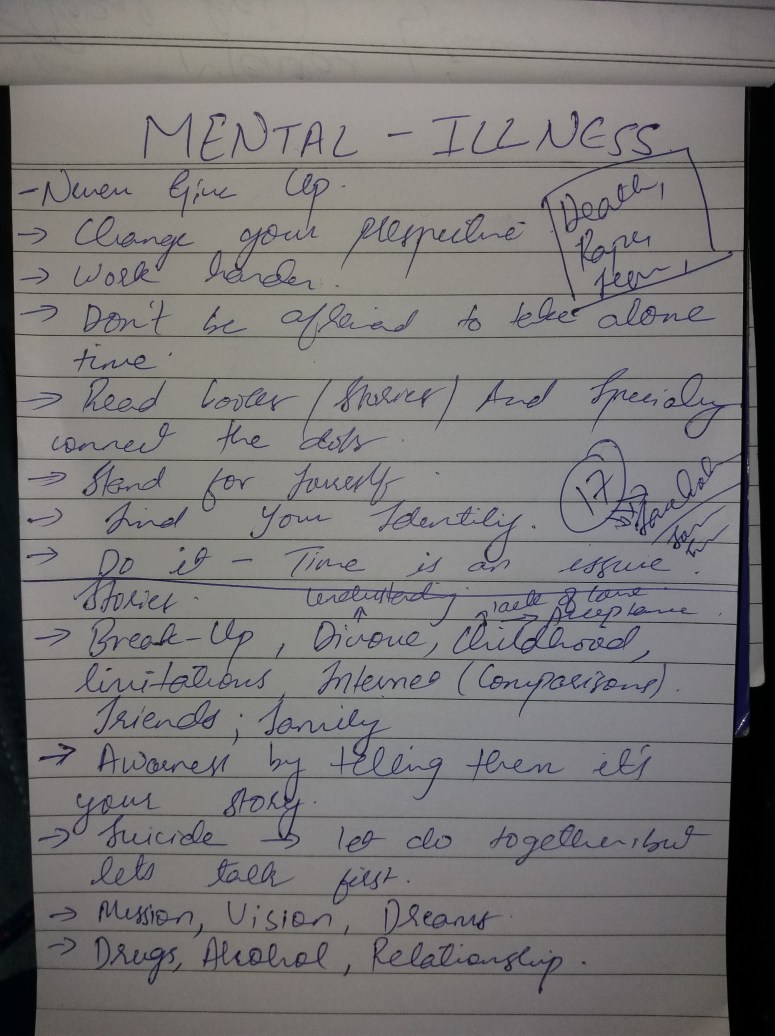 MENTAL - ILLNESS
- Never Give Up.
Death,
→ Change your prespective
Rape,
→ Work harder.
→ Don't be afraid to take alone
time.
→ Read books (Stories) And Specialy
connect the dots.
→ Stand for yourself.
17
→ Find Your Identity.
→ Do it - Time is an issue.
Stories.
understanding
lack of love
→ Acceptance.
→ Break-Up, Divorce, Childhood,
limitations, Internet (Comparisons).
Friends; family
→ Awarness by telling them it's
your story.
→ Suicide → let do together, but
lets talk first.
→ Mission, Vision, Dreams.
→ Drugs, Alcohol, Relationship.